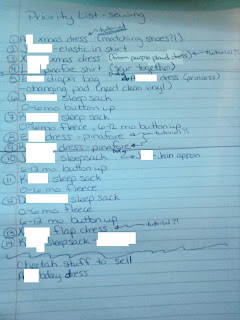 Priority List - sewing
tutorial
① A xmas dress (matching shoes?!)
② J - elastic in skirt
③ X xmas dress (from purple plaid dress) tutorial?!
④ L shirt (sew together)
⑤ diaper bag A dress (princess)
- changing pad (need clear vinyl)
⑥ sleep sack
0-6 mo button up
⑦ K sleep sack
0-6 mo fleece, 6-12 mo button up
⑧ dress - pinafore tutorial?!
⑨ dress - pinafore
⑩ sleepsack J - Jean apron
6-12 mo button up
⑪ K sleep sack
0-6 mo fleece
⑫ sleep sack
0-6 mo fleece
6-12 mo button up
⑬ X flap dress tutorial?!
⑭ K sleepsack -
Cheetah stuff to sell
A bday dress